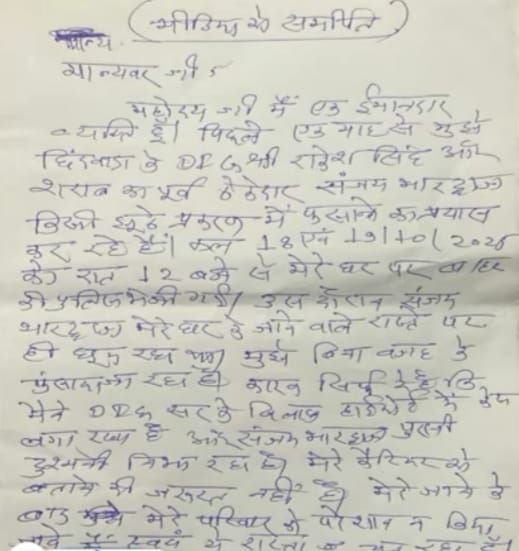 मीडिया को समर्पित
मान्यवर जी
महोदय जी मैं एक ईमानदार
व्यक्ति हूँ। पिछले एक माह से मुझे
छिंदवाडा के DPC श्री राकेश सिंह और
शराब का पूर्व ठेकेदार संजय भारद्वाज
किसी झूठे प्रकरण में फंसाने का प्रयास
कर रहे हैं। कल 18 एवं 19/10/
को रात 12 बजे से मेरे घर पर
की पुलिस भेजी गयी। उस दौरान संजय
भारद्वाज मेरे घर के जाने वाले रास्ते पर
ही घूम रहा था। मुझे बिना वजह के
फंसाया जा रहा है। कारण सिर्फ ये है कि
मेने DPC सर के खिलाफ हाईकोर्ट में केस
लगा रखा है और संजय भारद्वाज पुरानी
दुश्मनी निभा रहा है। मेरे कैरियर को
बताने की जरूरत नहीं है। मेरे जाने के
बाद मेरे परिवार को परेशान न किया
जावे मैं स्वयं ये रास्ता